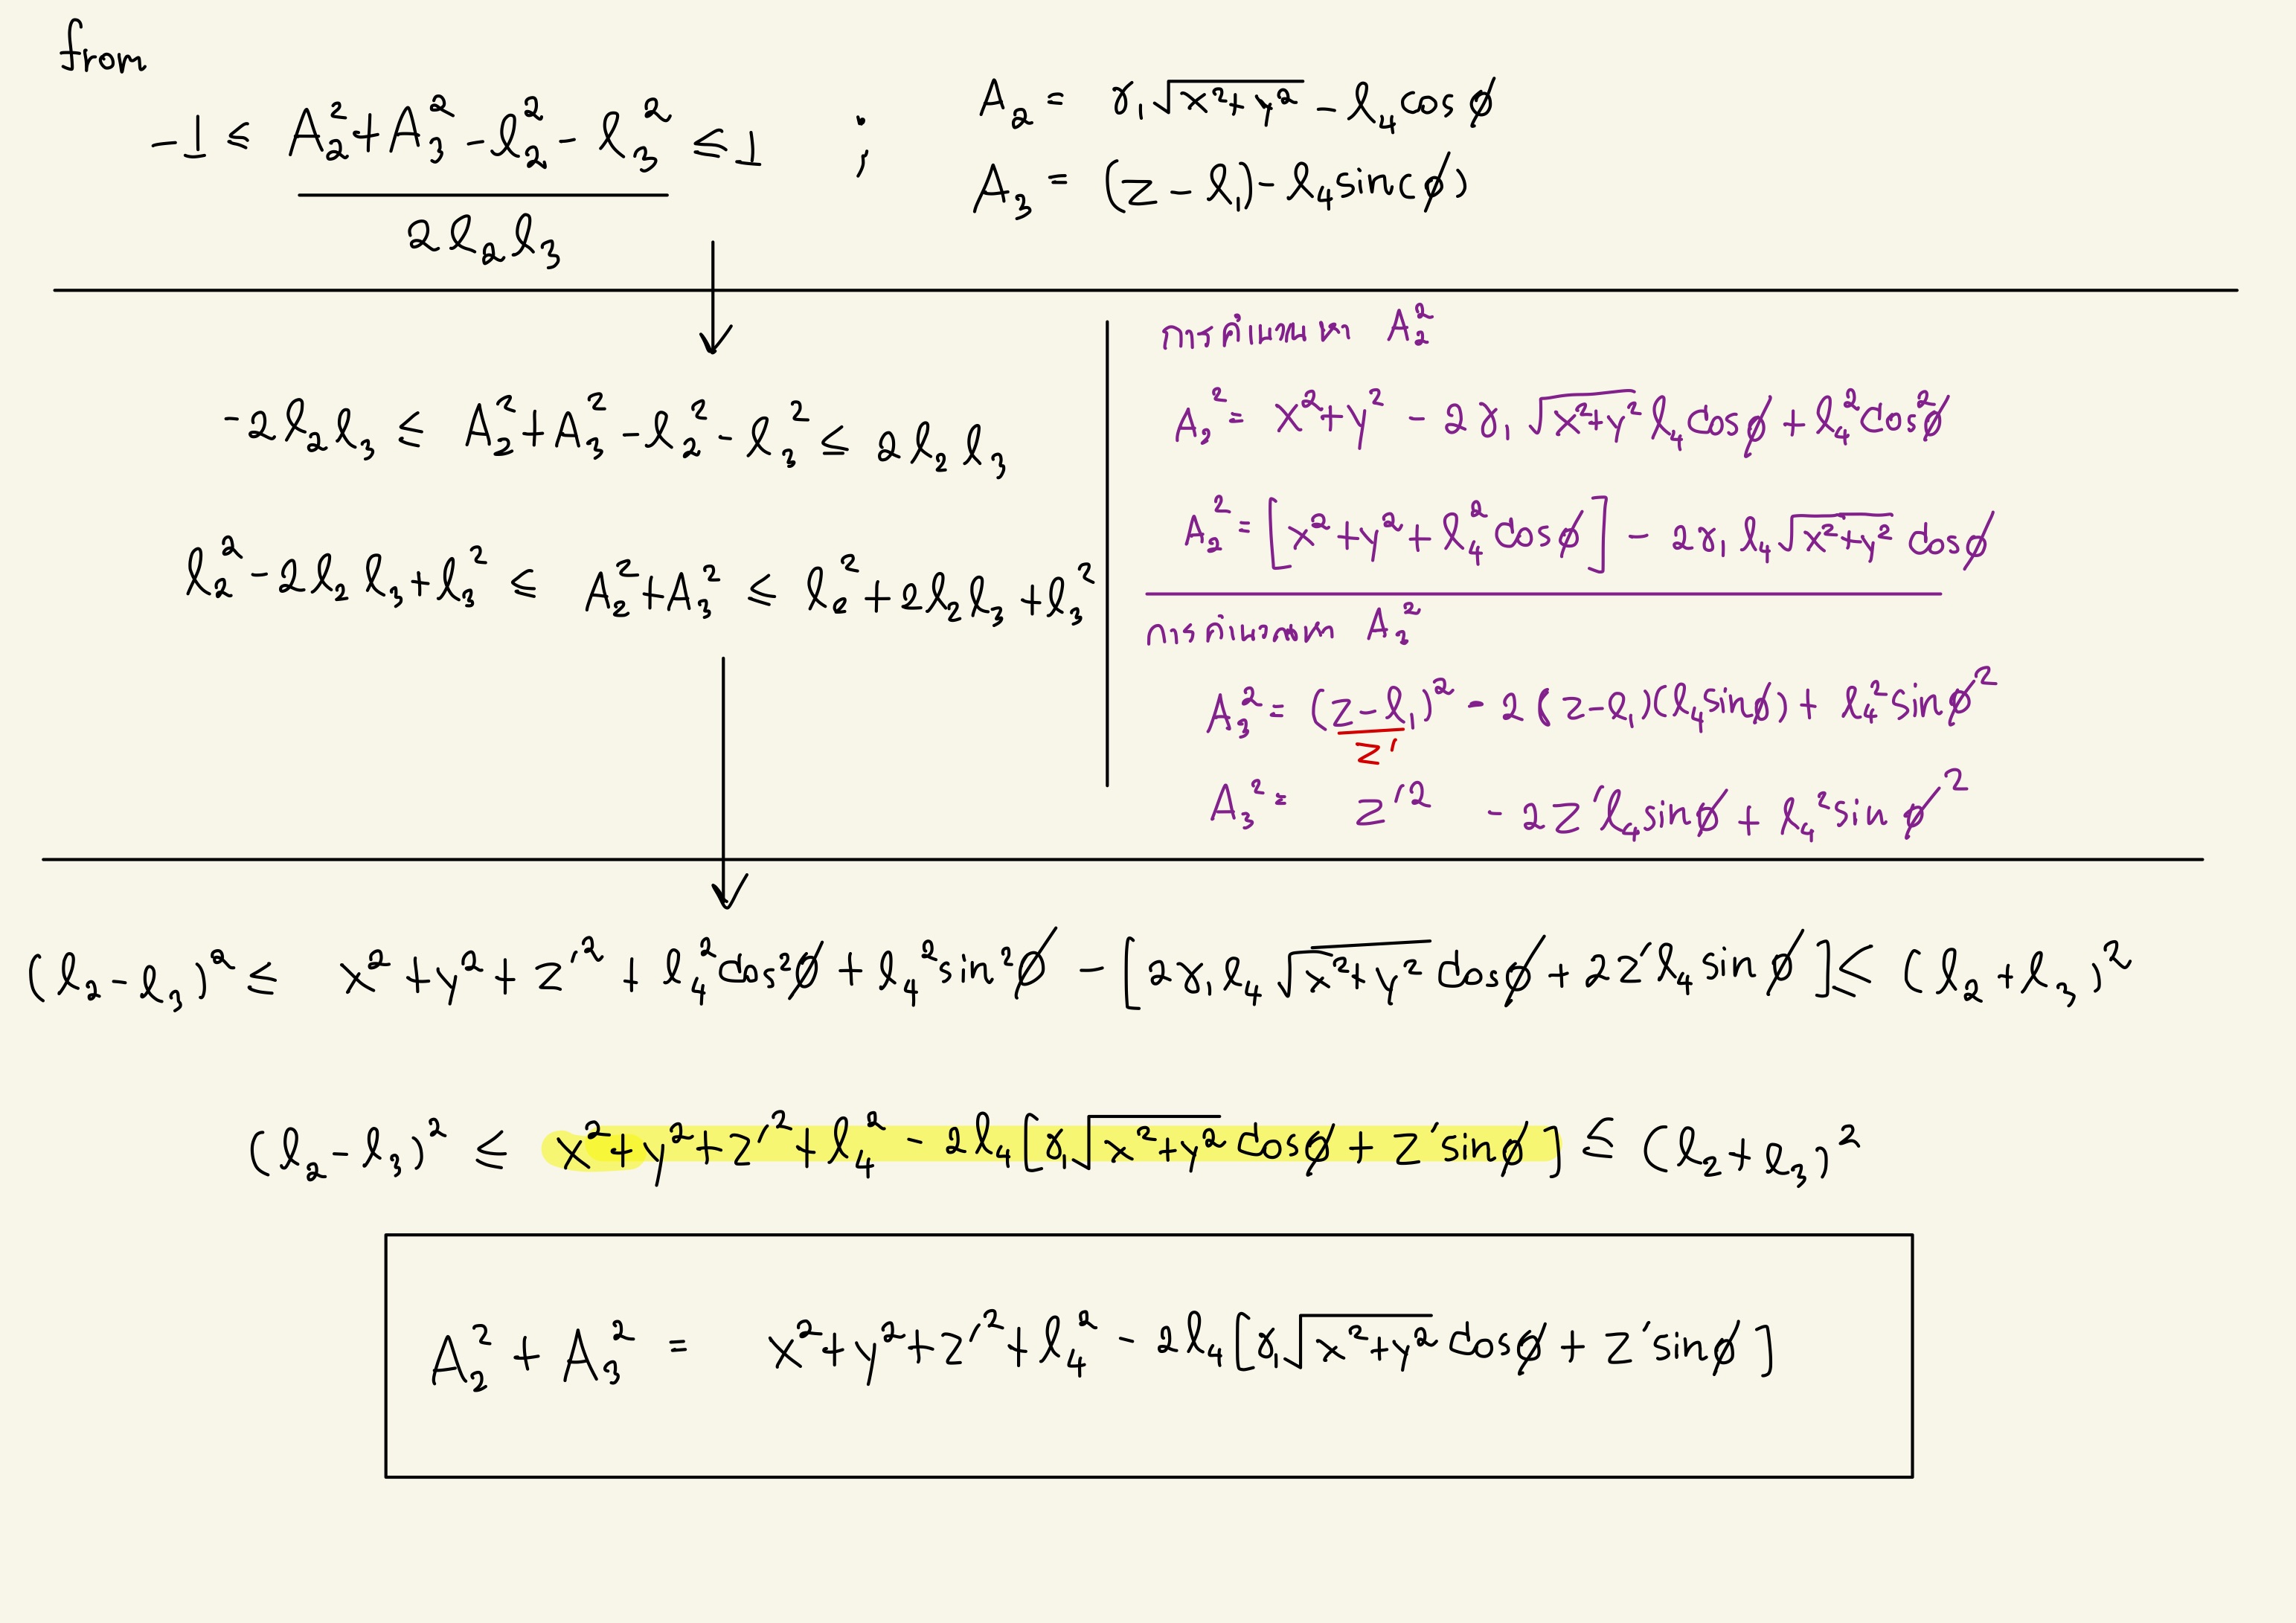 from
-1 ≤ (A₂² + A₃² - l₂² - l₃²) / (2l₂l₃) ≤ 1 ;
A₂ = γ₁√(x²+y²) - l₄cos ϕ
A₃ = (z - l₁) - l₄sin(ϕ)
-2l₂l₃ ≤ A₂² + A₃² - l₂² - l₃² ≤ 2l₂l₃
l₂² - 2l₂l₃ + l₃² ≤ A₂² + A₃² ≤ l₂² + 2l₂l₃ + l₃²
การคำนวณหา A₂²
A₂² = x² + y² - 2γ₁√(x²+y²) l₄cosϕ + l₄²cos²ϕ
A₂² = [x² + y² + l₄²cosϕ] - 2γ₁l₄√(x²+y²) cosϕ
การคำนวณหา A₃²
A₃² = (z - l₁)² - 2(z - l₁)(l₄sinϕ) + l₄²sinϕ²
z'
A₃² = z'² - 2z'l₄sinϕ + l₄²sin ϕ²
(l₂ - l₃)² ≤ x² + y² + z'² + l₄²cos²ϕ + l₄²sin²ϕ - [2γ₁l₄√(x²+y²) cosϕ + 2z'l₄sin ϕ] ≤ (l₂ + l₃)²
(l₂ - l₃)² ≤ x² + y² + z'² + l₄² - 2l₄[γ₁√(x²+y²) cosϕ + z'sinϕ] ≤ (l₂ + l₃)²
A₂² + A₃² = x² + y² + z'² + l₄² - 2l₄[γ₁√(x²+y²) cosϕ + z'sinϕ]